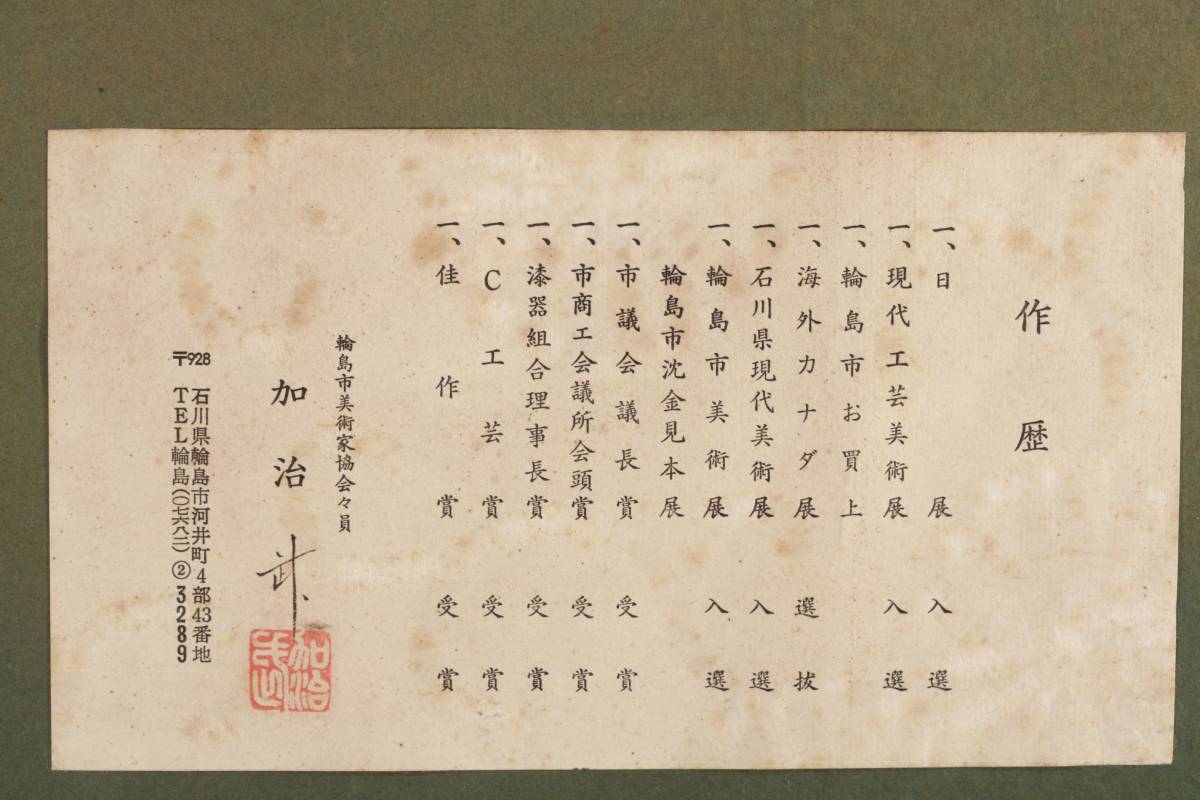 作歴
一、日展入選
一、現代工芸美術展入選
一、輪島市お買上
一、海外カナダ展選抜
一、石川県現代美術展入選
一、輪島市美術展入選
輪島市沈金見本展
一、市議会議長賞受賞
一、市商工会議所会頭賞受賞
一、漆器組合理事長賞受賞
一、C工芸賞受賞
一、佳作賞受賞
輪島市美術家協会々員
加治武
加治
〒928 石川県輪島市河井町4部43番地
TEL輪島(〇七六八二)②3289